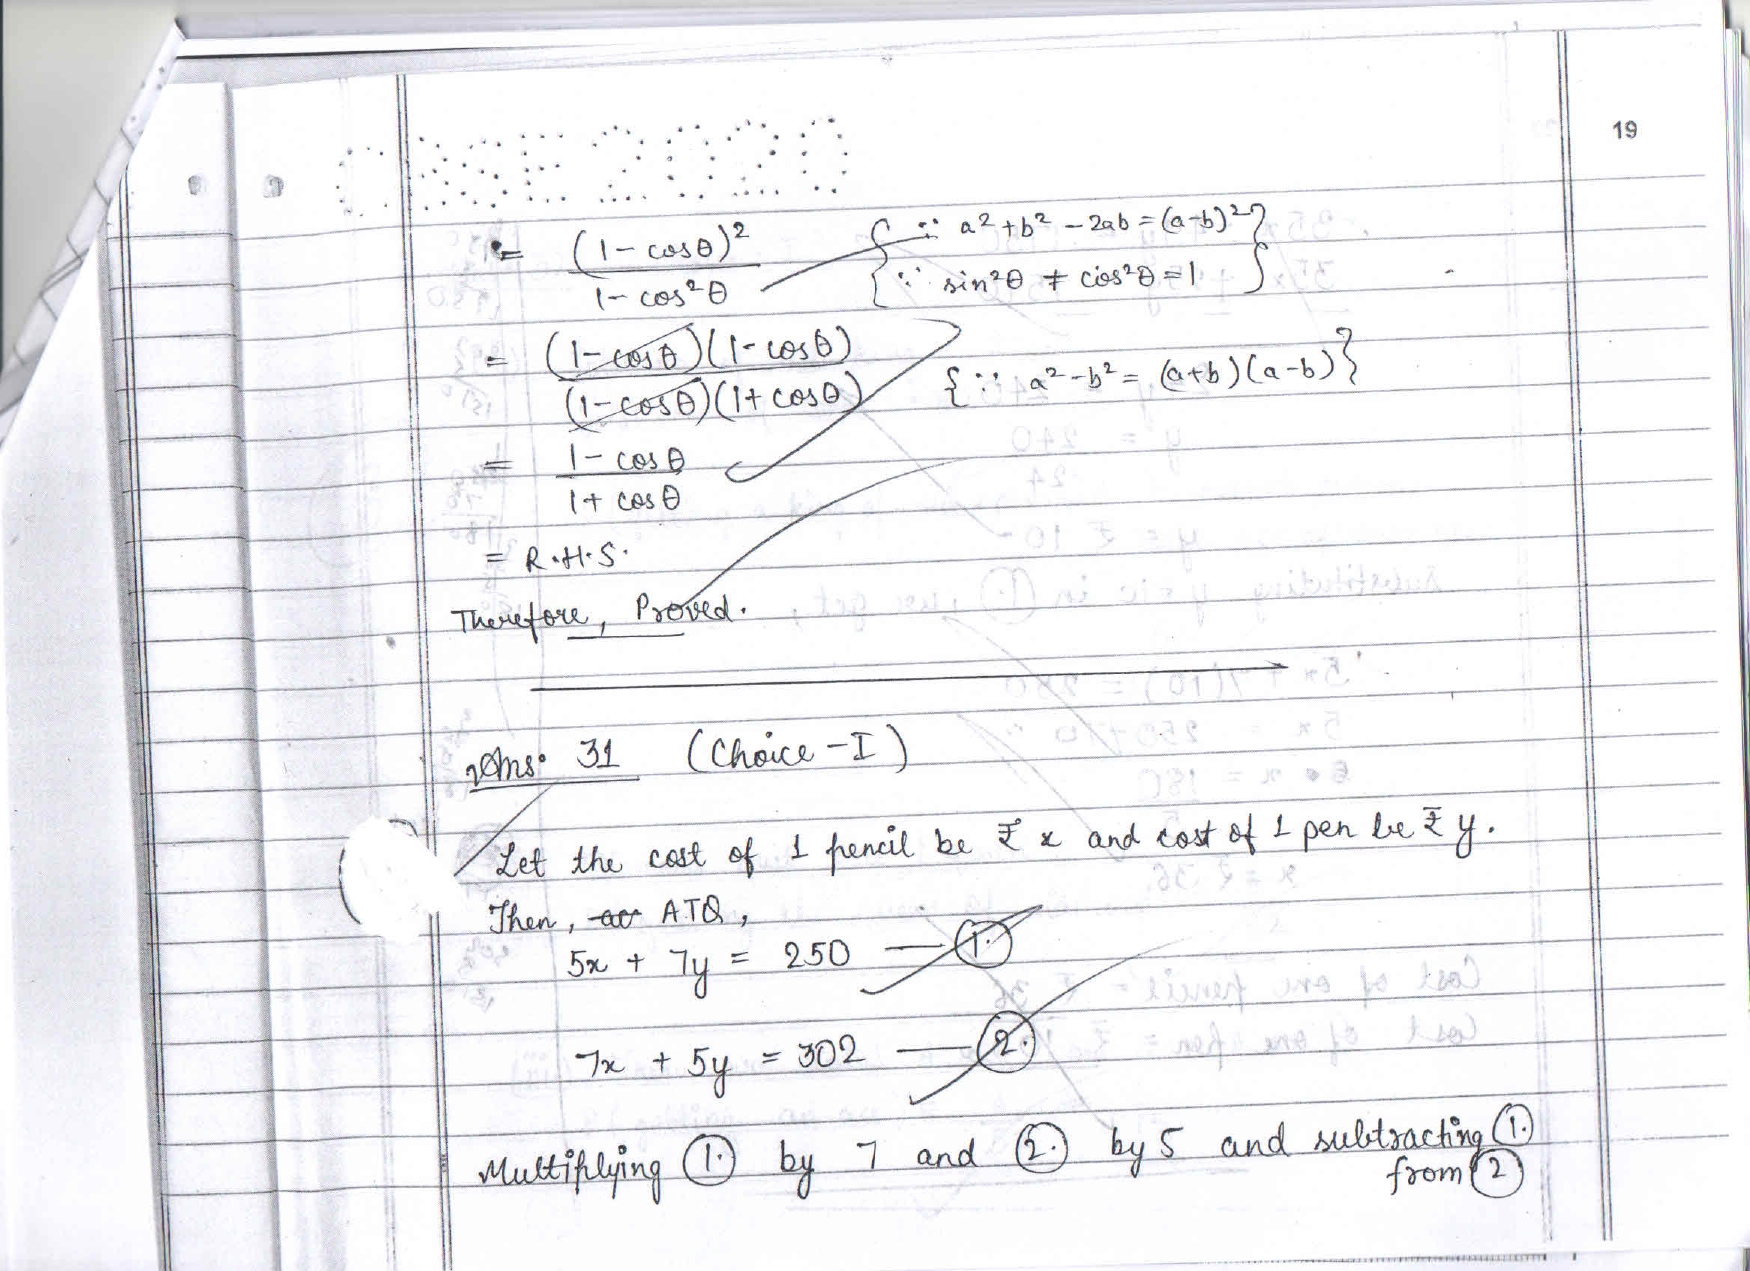 19
CBSE 2020
= (1 - cosθ)² / 1 - cos²θ { ∵ a² + b² - 2ab = (a-b)² }
{ ∵ sin²θ + cos²θ = 1 }
= (1 - cosθ)(1 - cosθ) / (1 - cosθ)(1 + cosθ) { ∵ a² - b² = (a+b)(a-b) }
= 1 - cosθ / 1 + cosθ
= R.H.S.
Therefore, Proved.
Ans: 31 (Choice - I)
Let the cost of 1 pencil be ₹ x and cost of 1 pen be ₹ y.
Then, ATQ,
5x + 7y = 250 — (1.)
7x + 5y = 302 — (2.)
Multiplying (1.) by 7 and (2.) by 5 and subtracting (1.)
from (2)